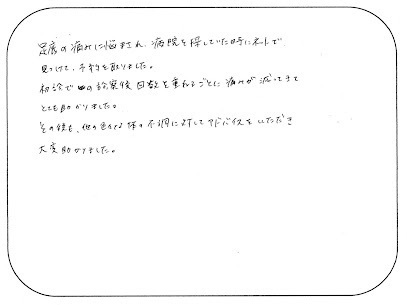 足底の痛みに悩まされ、病院を探していた時にネットで
見つけて、予約を取りました。
初診での診察後 回数を重ねるごとに痛みが減ってきて
とても助かりました。
その後も、他の色々な体の不調に対してアドバイスをいただき
大変助かりました。